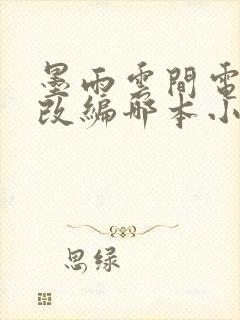 墨雨雲間電
改編哪本小
思绿